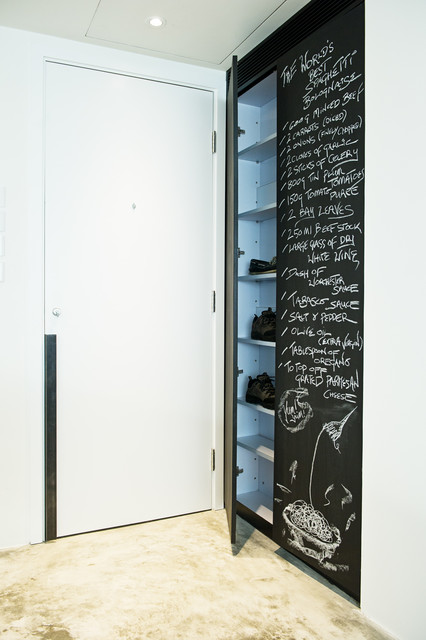 THE WORLD'S
BEST
SPAGHETTI
BOLOGNAISE
600g MINCED BEEF
2 CARROTS (DICED)
2 ONIONS (FINELY CHOPPED)
2 CLOVES OF GARLIC
2 STICKS OF CELERY
800g TIN PLUM
TOMATOES
150g TOMATO
PUREE
2 BAY LEAVES
250 ml BEEF STOCK
LARGE GLASS OF DRY
WHITE WINE
DASH OF
WORCHESTER
SAUCE
TABASCO SAUCE
SALT & PEPPER
OLIVE OIL
(EXTRA VIRGIN)
TABLESPOON OF
OREGANO
TO TOP OFF
GRATED PARMESAN
CHEESE
YUM
YUM!